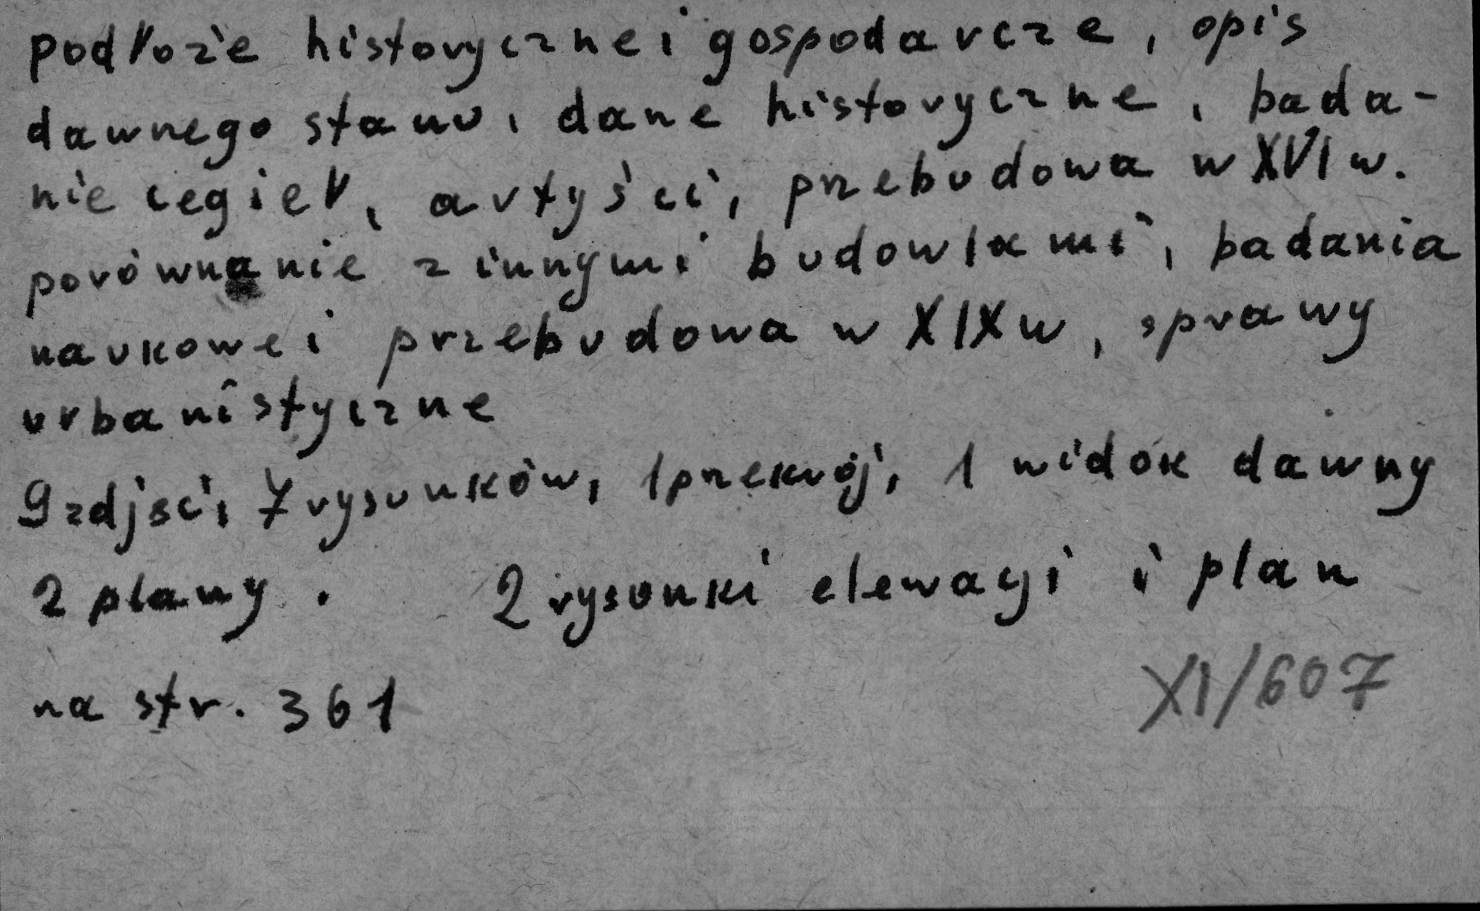 podłoże historyczne i gospodarcze, opis
dawnego stanu, dane historyczne, bada-
nie cegieł, artyści, przebudowa w XVI w.
porównanie z innymi budowlami, badania
naukowe i przebudowa w XIX w, sprawy
urbanistyczne
9 zdjęć, 7 rysunków, 1 przekrój, 1 widok dawny
2 plany. 2 rysunki elewacji i plan
na str. 361
XI/607